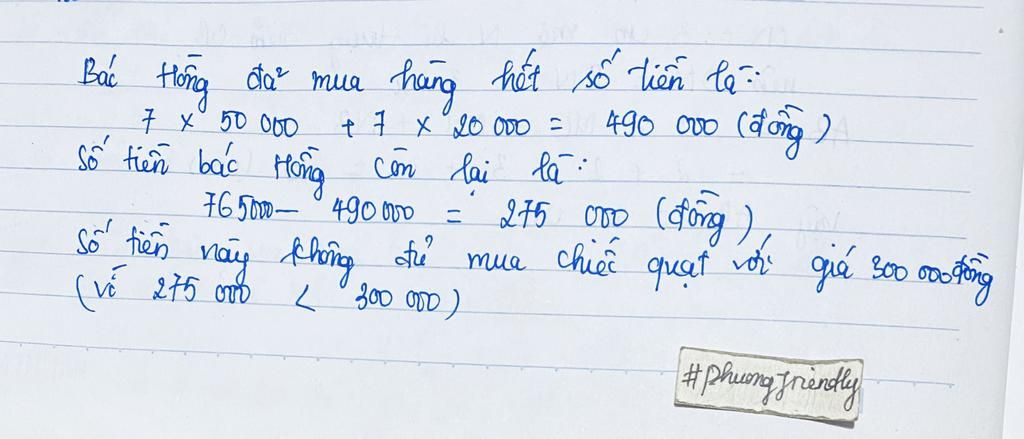 Bác Hồng đã mua hàng hết số tiền là:
7 x 50 000 + 7 x 20 000 = 490 000 (đồng)
Số tiền bác Hồng còn lại là:
765000 - 490000 = 275 000 (đồng)
Số tiền này không đủ mua chiếc quạt với giá 300 000 đồng
(vì 275 000 < 300 000)
#phuongfriendly